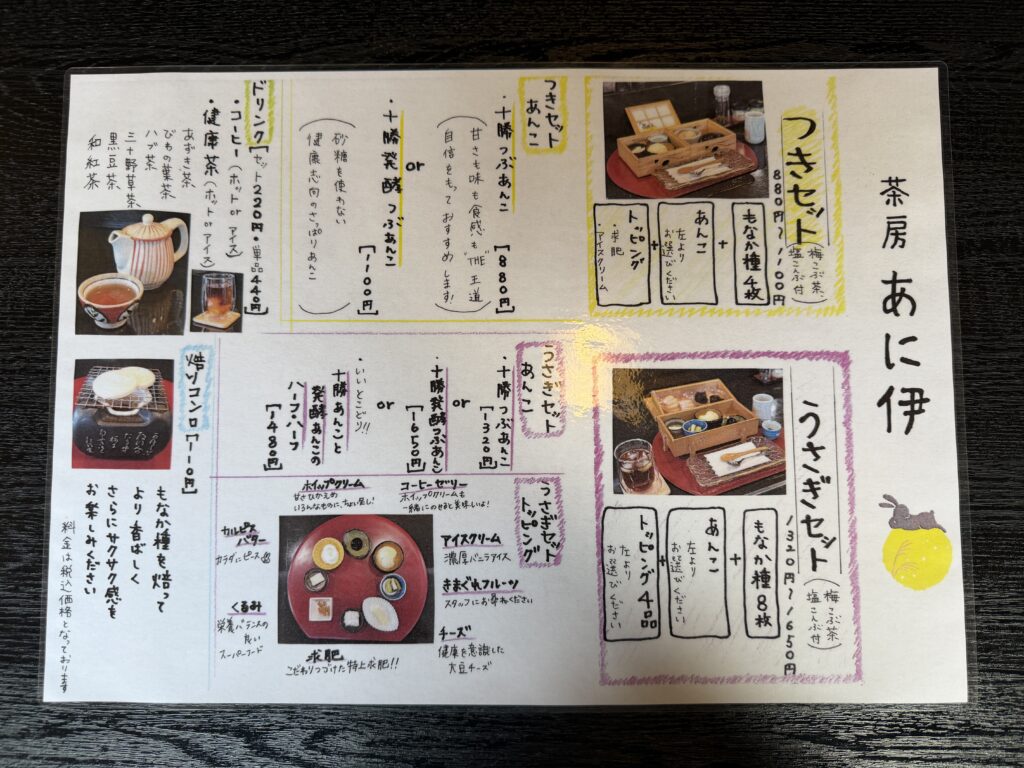 茶房 あに伊
つきセット
(梅こぶ茶、
塩こんぶ付)
880円〜1100円
もなか種4枚
+
あんこ
左より
お選びください
+
トッピング
・求肥
・アイスクリーム
つきセット
あんこ
・十勝つぶあんこ
[880円]
(甘さも味も食感も"THE 王道"
自信をもっておすすめします!)
or
・十勝発酵つぶあんこ
[1100円]
(砂糖を使わない
健康志向のさっぱりあんこ)
ドリンク[セット220円・単品440円]
・コーヒー(ホット or アイス)
・健康茶(ホット or アイス)
あずき茶
びわの葉茶
ハブ茶
三十野草茶
黒豆茶
和紅茶
うさぎセット
(梅こぶ茶
塩こんぶ付)
1320円〜1650円
もなか種8枚
+
あんこ
左より
お選びください
+
トッピング4品
左より
お選びください
うさぎセット
あんこ
・十勝つぶあんこ
[1320円]
or
・十勝発酵つぶあんこ
[1650円]
or
・いいとこどり!!
十勝あんこと
発酵あんこの
ハーフハーフ
[1480円]
うさぎセット
トッピング
コーヒーゼリー
ホイップクリームも
一緒にのせると美味しいよ!
ホイップクリーム
甘さひかえめ
いろんなものに、ちょい足し!
カルピス
バター
カラダにピース
くるみ
栄養バランスの
良い
スーパーフード
アイスクリーム
濃厚バニラアイス
きまぐれフルーツ
スタッフにお尋ねください
チーズ
健康を意識した
大豆チーズ
求肥
こだわりつづけた特上求肥!!
焙りコンロ[110円]
もなか種を焙って
より香ばしく
さらにサクサク感を
お楽しみください
料金は税込価格となっております